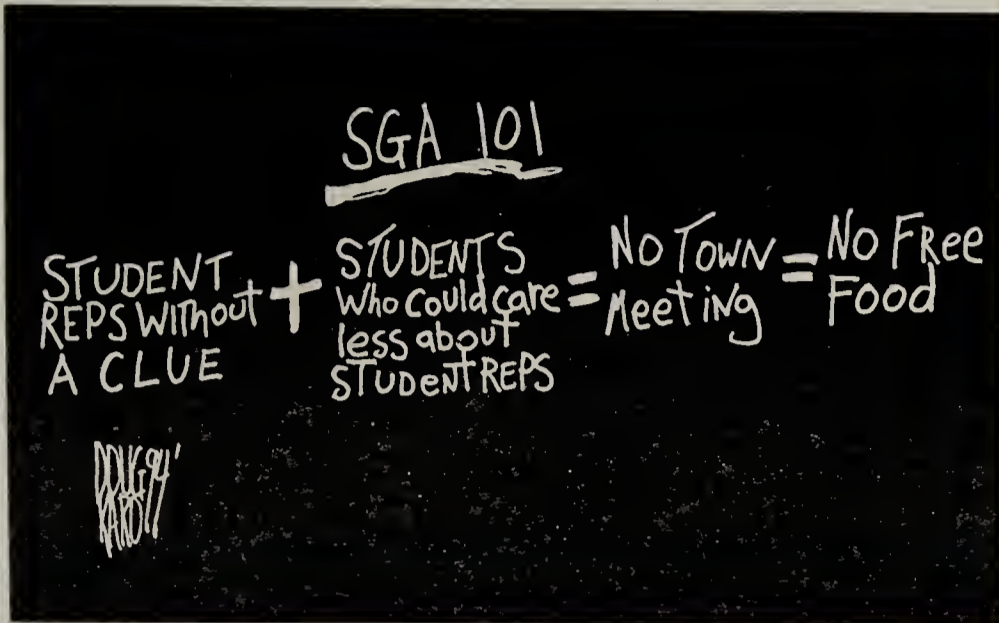 SGA 101
STUDENT
REPS Without
A CLUE
+
STUDENTS
Who Could care
less about
STUDeNT REPS
=
No TowN
MeetiNg
=
No FRee
Food
DOUG 94'